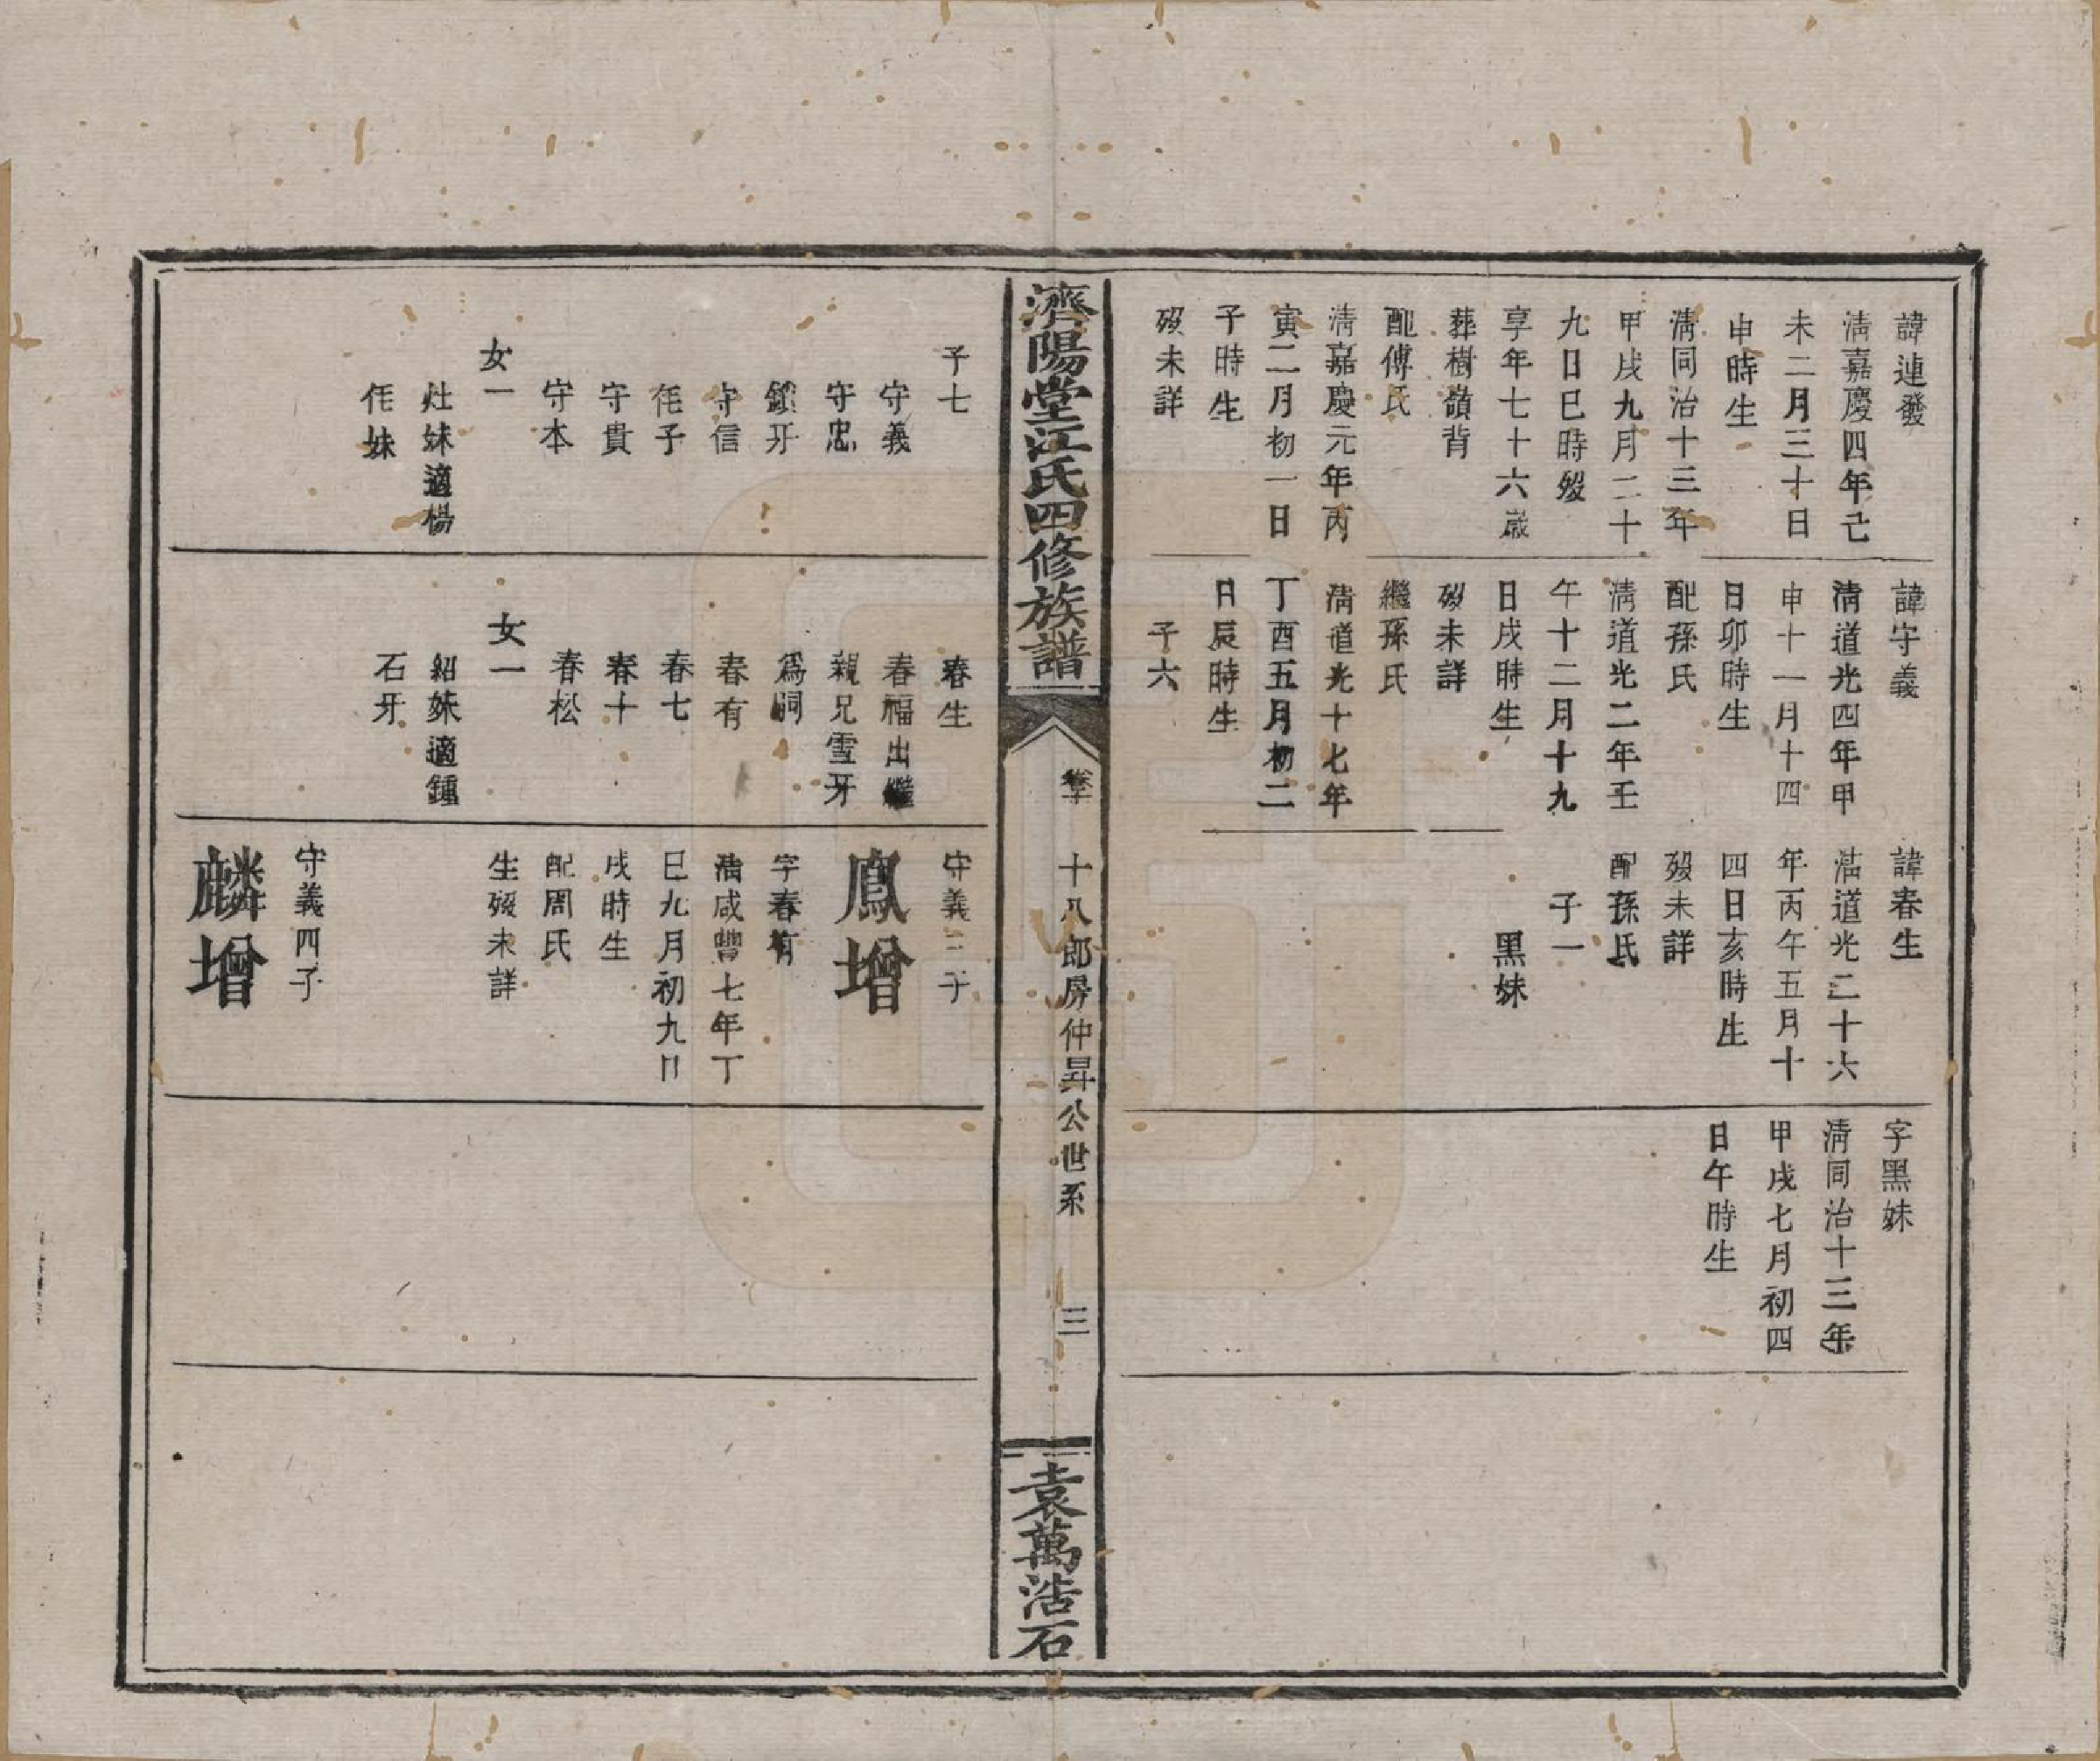 諱連發
清嘉慶四年己
未二月三十日
申時生
清同治十三年
甲戌九月二十
九日巳時歿
享年七十六歲
葬樹嶺背
配傅氏
清嘉慶元年丙
寅二月初一日
子時生
歿未詳
諱守義
清道光四年甲
申十一月十四
日卯時生
配孫氏
清道光二年壬
午十二月十九
日戌時生
歿未詳
繼孫氏
清道光十七年
丁酉五月初二
日辰時生
子六
諱春生
清道光二十六
年丙午五月十
四日亥時生
歿未詳
配孫氏
子一
黑妹
字黑妹
清同治十三年
甲戌七月初四
日午時生
濟陽堂江氏四修族譜
十八郎房仲昇公世系
三
袁萬浩石
子七
守義
守忠
牙
守信
任子
守貴
守本
女一
灶妹適楊
任妹
春生
春福出繼
親兄雪牙
爲嗣
春有
春七
春十
春松
女一
紹妹適鍾
石牙
守義三子
鳳增
字春有
清咸豐七年丁
巳九月初九日
戌時生
配周氏
生歿未詳
守義四子
麟增